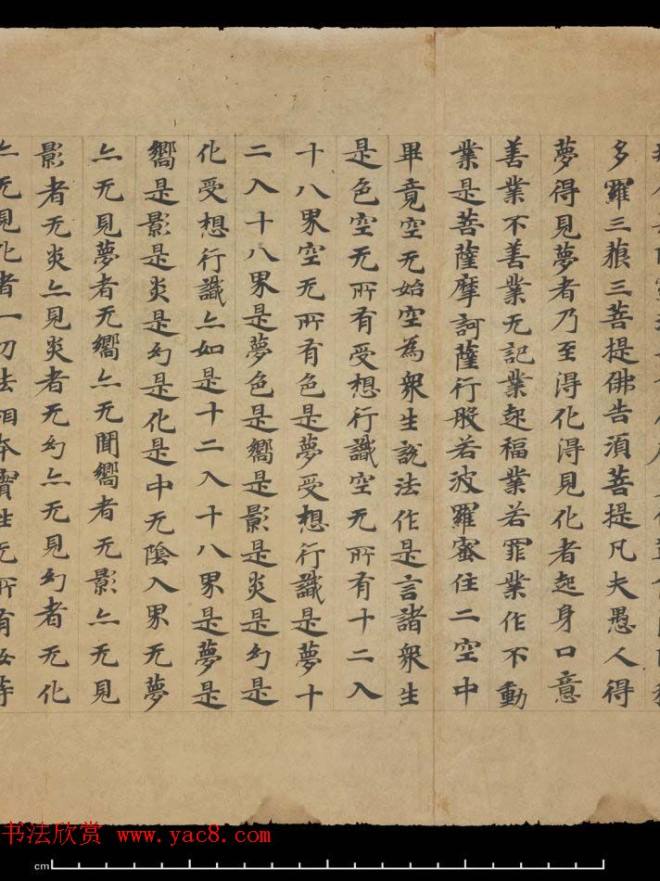 多羅三藐三菩提佛告湏菩提凡夫愚人得
夢得見夢者乃至得化得見化者起身口意
善業不善業无記業起福業若罪業作不動
業是菩薩摩訶薩行般若波羅蜜住二空中
畢竟空无始空為衆生說法作是言諸衆生
是色空无所有受想行識空无所有十二入
十八界空无所有色是夢受想行識是夢十
二入十八界是夢色是嚮是影是炎是幻是
化受想行識亦如是十二入十八界是夢是
嚮是影是炎是幻是化是中无陰入界无夢
亦无見夢者无嚮亦无聞嚮者无影亦无見
影者无炎亦見炎者无幻亦无見幻者无化
亦无見化者一切法相本實性无所有汝等
书法欣赏 www.yac8.com
cm